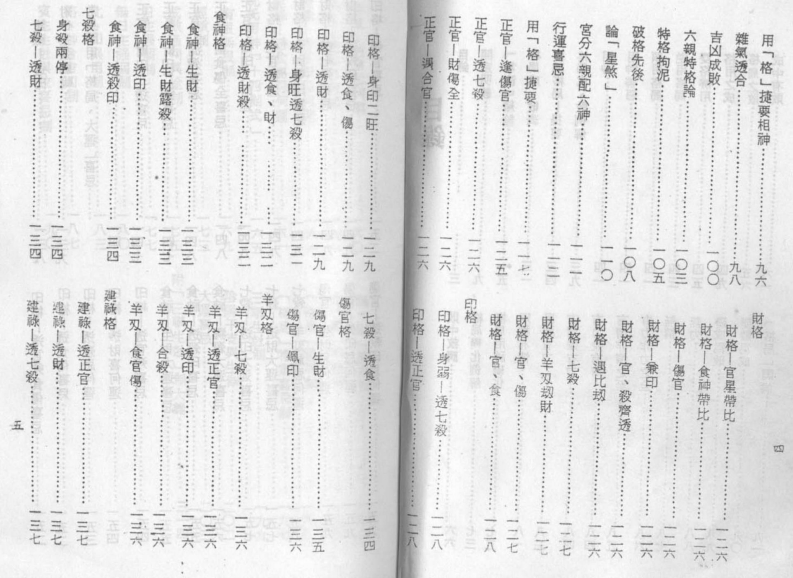 用「格」捷要相神………………九六
雜氣透合………………九八
吉凶成敗………………一〇〇
六親特格論………………一〇三
特格拘泥………………一〇五
破格先後………………一〇八
論「星煞」………………一一〇
宮分六親配六神………………
行運喜忌………………一一二
用「格」捷要………………
正官—逢傷官………………一二五
正官—透七殺………………一二六
正官—財傷全………………一二六
正官—合官………………一二六
財格
財格—官星帶比………………一二六
財格—食神帶比………………一二六
財格—傷官………………一二六
財格—兼印………………一二六
財格—官、殺齊透………………一二六
財格—遇比刼………………一二六
財格—七殺………………一二七
財格—羊刄刼財………………一二七
財格—官、傷………………一二七
財格—官、食………………一二八
印格
印格—身弱—透七殺………………一二八
印格—透正官………………一二八
四
印格—身印二旺………………一二九
印格—透食、傷………………一二九
印格—透財………………一二九
印格—身旺透七殺………………一三一
印格—透食、財………………一三二
印格—透財殺………………一三二
食神格
食神—生財………………一三三
食神—生財露殺………………一三三
食神—透印………………一三三
食神—透殺印………………一三四
七殺格
身殺兩停………………一三四
七殺—透財………………一三四
七殺—透食………………一三四
傷官格
傷官—生財………………一三五
傷官—佩印………………一三六
羊刄格
羊刄—七殺………………一三六
羊刄—透正官………………一三六
羊刄—透印………………一三六
羊刄—合殺………………一三六
羊刄—食官傷………………一三六
建祿格
建祿—透正官………………一三七
建祿—透財………………一三七
建祿—透七殺………………一三七
五